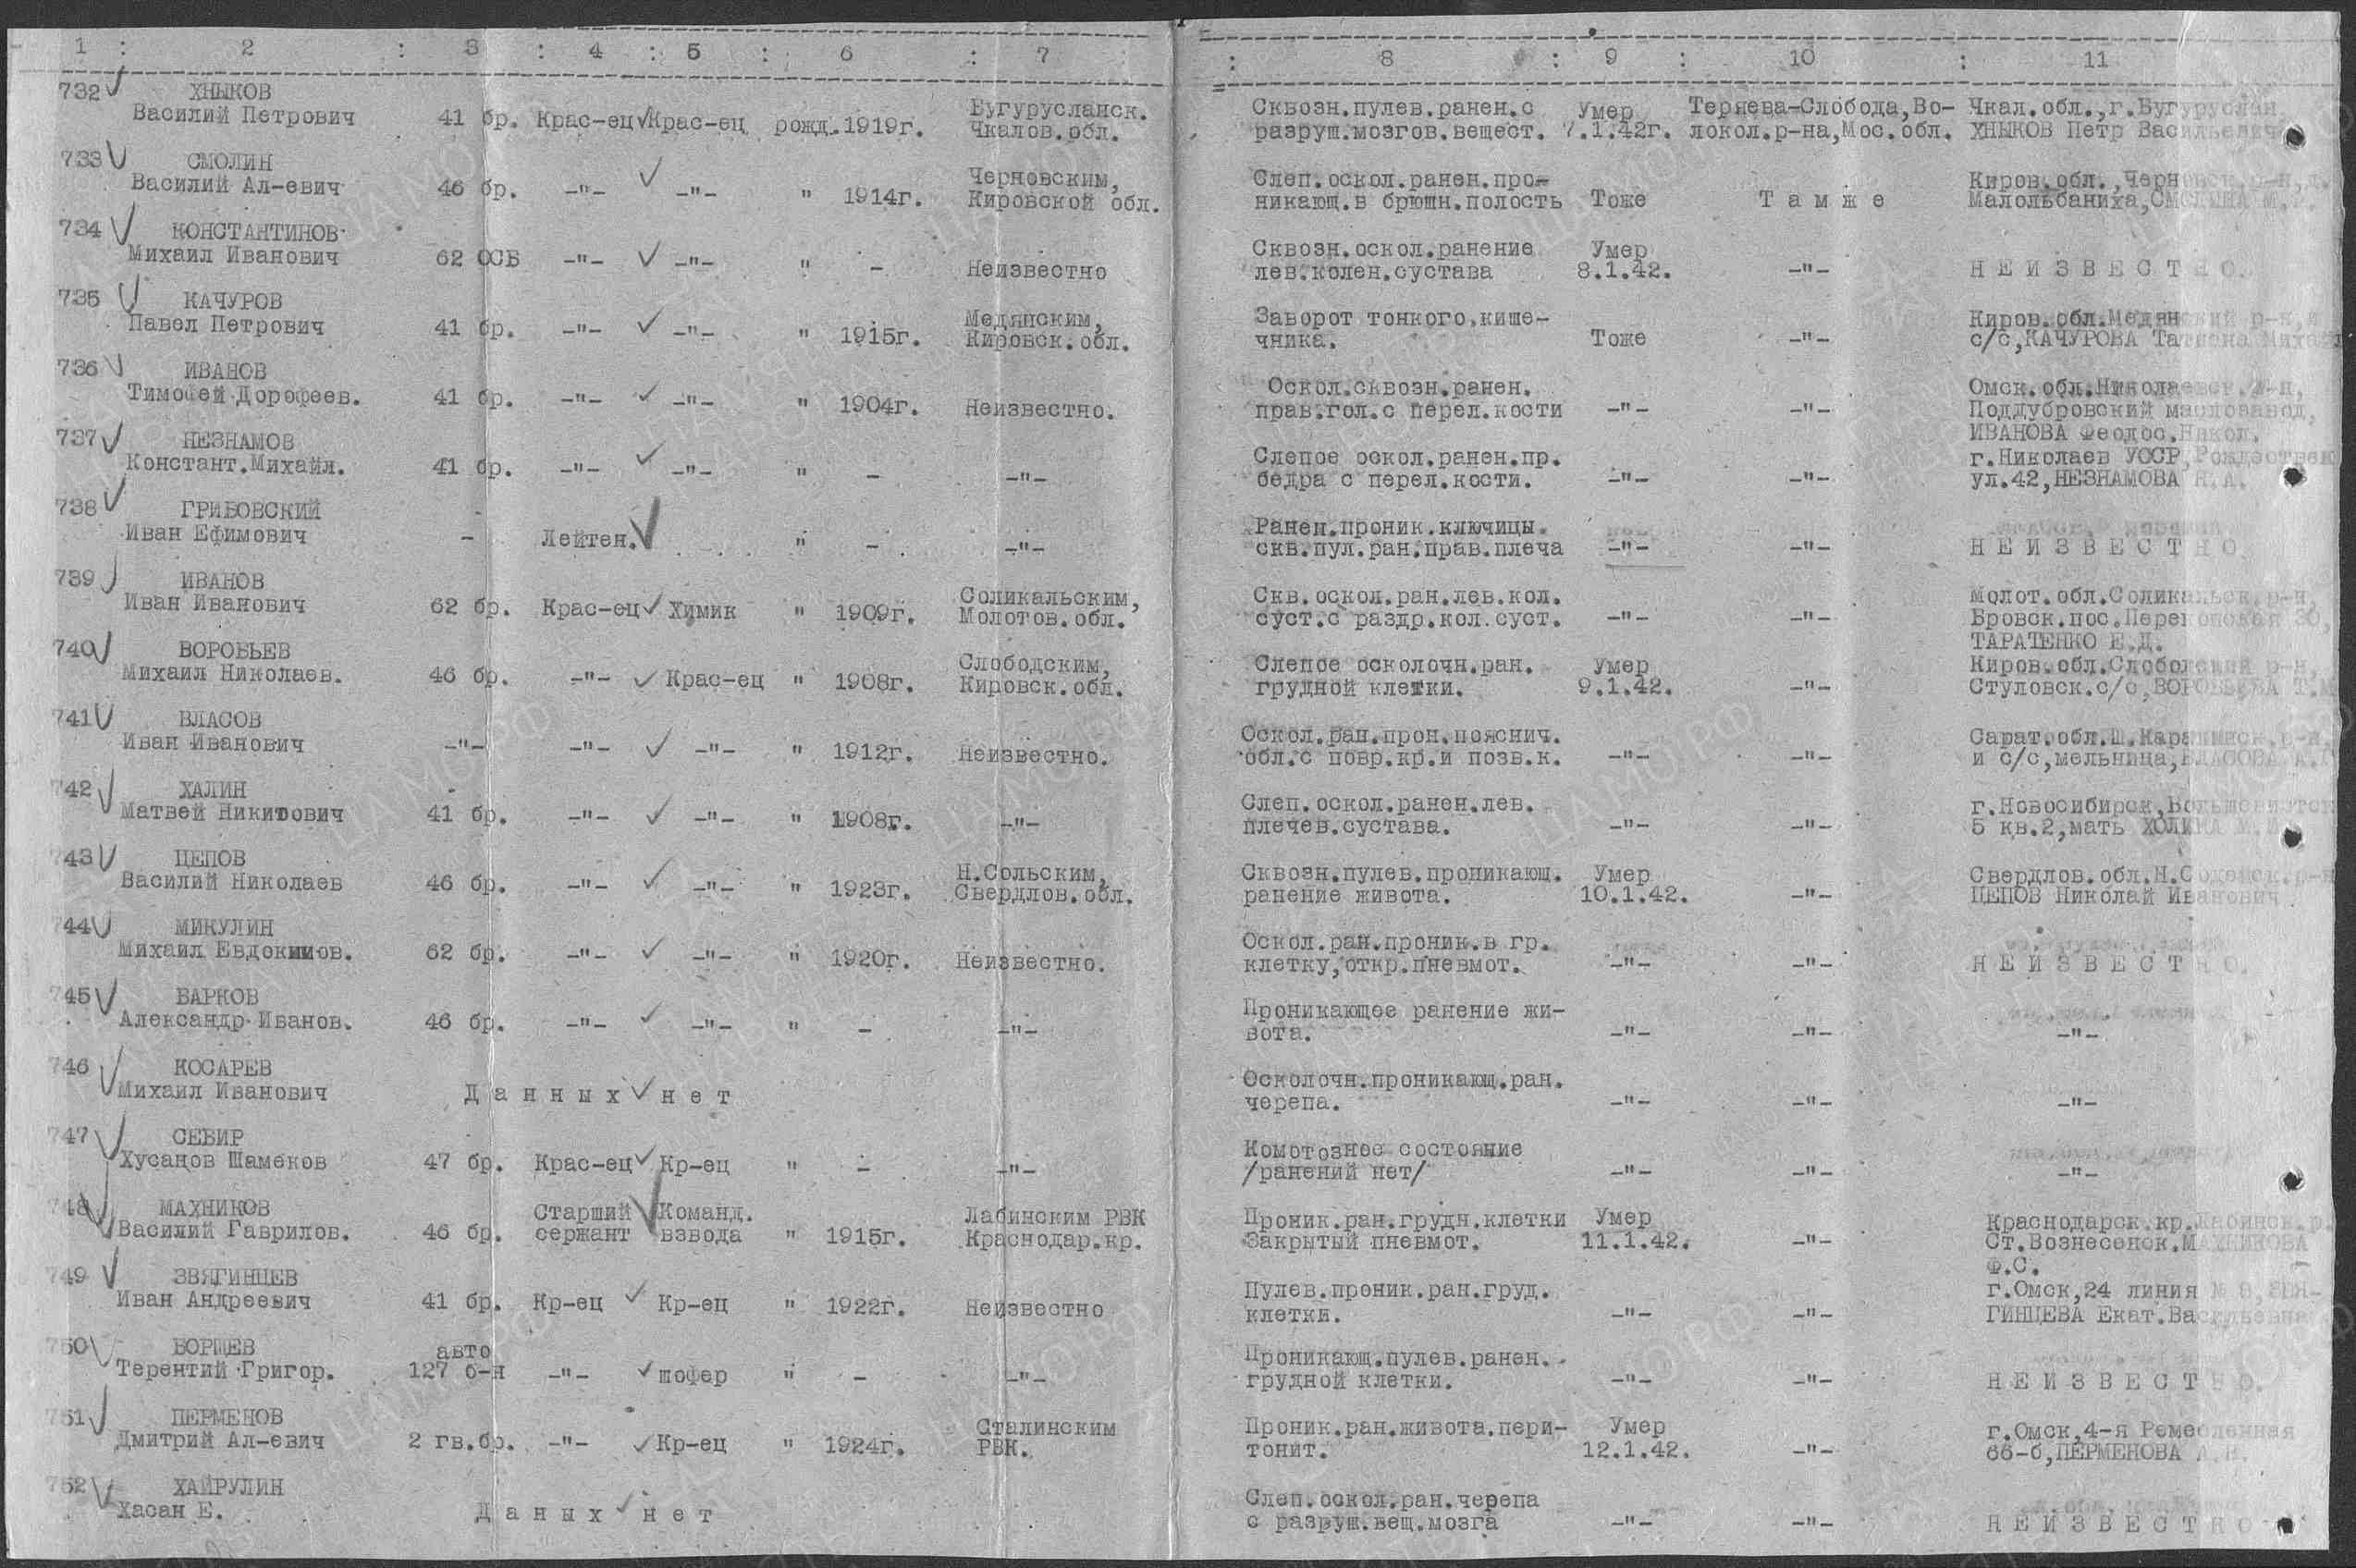 1 : 2 : 3 : 4 : 5 : 6 : 7 : 8 : 9 : 10 : 11
732 ХНЫКОВ
Василий Петрович 41 бр. Крас-ец Крас-ец рожд. 1919г. Бугурусланск. Чкалов.обл. Сквозн.пулев.ранен.с разруш.мозгов.вещест. Умер 7.1.42г. Теряева-Слобода,Волокол.р-на,Мос.обл. Чкал.обл.,г.Бугуруслан. ХНЫКОВ Петр Васильевич
733 СМОЛИН
Василий Ал-евич 46 бр. -"- -"- " 1914г. Черновским, Кировской обл. Слеп.оскол.ранен.про-никающ.в брюшн.полость Тоже Там же Киров.обл.,Черновск.р-н,д. Малольбаниха,СМОЛИНА М.
734 КОНСТАНТИНОВ
Михаил Иванович 62 ОСБ -"- -"- " - Неизвестно Сквозн.оскол.ранение лев.колен.сустава Умер 8.1.42. -"- НЕИЗВЕСТНО.
735 КАЧУРОВ
Павел Петрович 41 бр. -"- -"- " 1915г. Медянским, Кировск.обл. Заворот тонкого.кише-чника. Тоже -"- Киров.обл.Медянский р-н, с/с,КАЧУРОВА Татиона Михайл
736 ИВАНОВ
Тимофей Дорофеев. 41 бр. -"- -"- " 1904г. Неизвестно. Оскол.сквозн.ранен. прав.гол.с перел.кости -"- -"- Омск.обл.Николаевск.р-н, Поддубровский маслозавод, ИВАНОВА Феодос.Никол.
737 НЕЗНАМОВ
Констант.Михайл. 41 бр. -"- -"- " - -"- Слепое оскол.ранен.пр. бедра с перел.кости. -"- -"- г.Николаев УССР,Рождествен ул.42,НЕЗНАМОВА Н.А.
738 ГРИБОВСКИЙ
Иван Ефимович - Лейтен. " - -"- Ранен.проник.ключицы скв.пул.ран.прав.плеча -"- -"- НЕИЗВЕСТНО.
739 ИВАНОВ
Иван Иванович 62 бр. Крас-ец Химик " 1909г. Соликальским, Молотов.обл. Скв.оскол.ран.лев.кол. суст.с раздр.кол.суст. -"- -"- Молот.обл.Соликальск.р-н, Бровск.пос.Перекопская 36, ТАРАТЕНКО Е.Д.
740 ВОРОБЬЕВ
Михаил Николаев. 46 бр. -"- Крас-ец " 1908г. Слободским, Кировск.обл. Слепое осколочн.ран. грудной клетки. Умер 9.1.42. -"- Киров.обл.Слободский р-н, Стуловск.с/с,ВОРОБЬЕВА Т.М
741 ВЛАСОВ
Иван Иванович -"- -"- -"- " 1912г. Неизвестно. Оскол.ран.прон.пояснич. обл.с повр.кр.и позв.к. -"- -"- Сарат.обл.Ш.Карамышск.р-н, и с/с,мельница,ВЛАСОВА А.
742 ХАЛИН
Матвей Никитович 41 бр. -"- -"- " 1908г. -"- Слеп.оскол.ранен.лев. плечев.сустава. -"- -"- г.Новосибирск,Большевистск 5 кв.2,мать ХОЛИНА М.
743 ЦЕПОВ
Василий Николаев 46 бр. -"- -"- " 1923г. Н.Сольским, Свердлов.обл. Сквозн.пулев.проникающ. ранение живота. Умер 10.1.42. -"- Свердлов.обл.Н.Соденск.р-н ЦЕПОВ Николай Иванович
744 МИКУЛИН
Михаил Евдокимов. 62 бр. -"- -"- " 1920г. Неизвестно. Оскол.ран.проник.в гр. клетку,откр.пневмот. -"- -"- НЕИЗВЕСТНО.
745 ВАРКОВ
Александр Иванов. 46 бр. -"- -"- " - -"- Проникающее ранение жи-вота. -"- -"- -"-
746 КОСАРЕВ
Михаил Иванович Данных нет Осколочн.проникающ.ран. черепа. -"- -"- -"-
747 СЕБИР
Хусанов Шамеков 47 бр. Крас-ец Кр-ец " - -"- Комотозное состояние /ранений нет/ -"- -"- -"-
748 МАХНИКОВ
Василий Гаврилов. 46 бр. Старший сержант Команд. взвода " 1915г. Лабинским РВК Краснодар.кр. Проник.ран.грудн.клетки Закрытый пневмот. Умер 11.1.42. -"- Краснодарск.кр.Лабинск.р. Ст.Вознесенск.МАХНИКОВА Ф.С.
749 ЗВЯГИНЦЕВ
Иван Андреевич 41 бр. Кр-ец Кр-ец " 1922г. Неизвестно Пулев.проник.ран.груд. клетки. -"- -"- г.Омск,24 линия № 9,ЗВЯ-ГИНЦЕВА Екат.Васильевна
750 БОРЩЕВ
Терентий Григор. авто 127 б-н -"- шофер " - -"- Проникающ.пулев.ранен. грудной клетки. -"- -"- НЕИЗВЕСТНО.
751 ПЕРМЕНОВ
Дмитрий Ал-евич 2 гв.бр. -"- Кр-ец " 1924г. Сталинским РВК. Проник.ран.живота.пери-тонит. Умер 12.1.42. -"- г.Омск,4-я Ремесленная 66-б,ПЕРМЕНОВА А.В.
752 ХАЙРУЛИН
Хасан Е. Даных нет Слеп.оскол.ран.черепа с разруш.вещ.мозга -"- -"- НЕИЗВЕСТНО